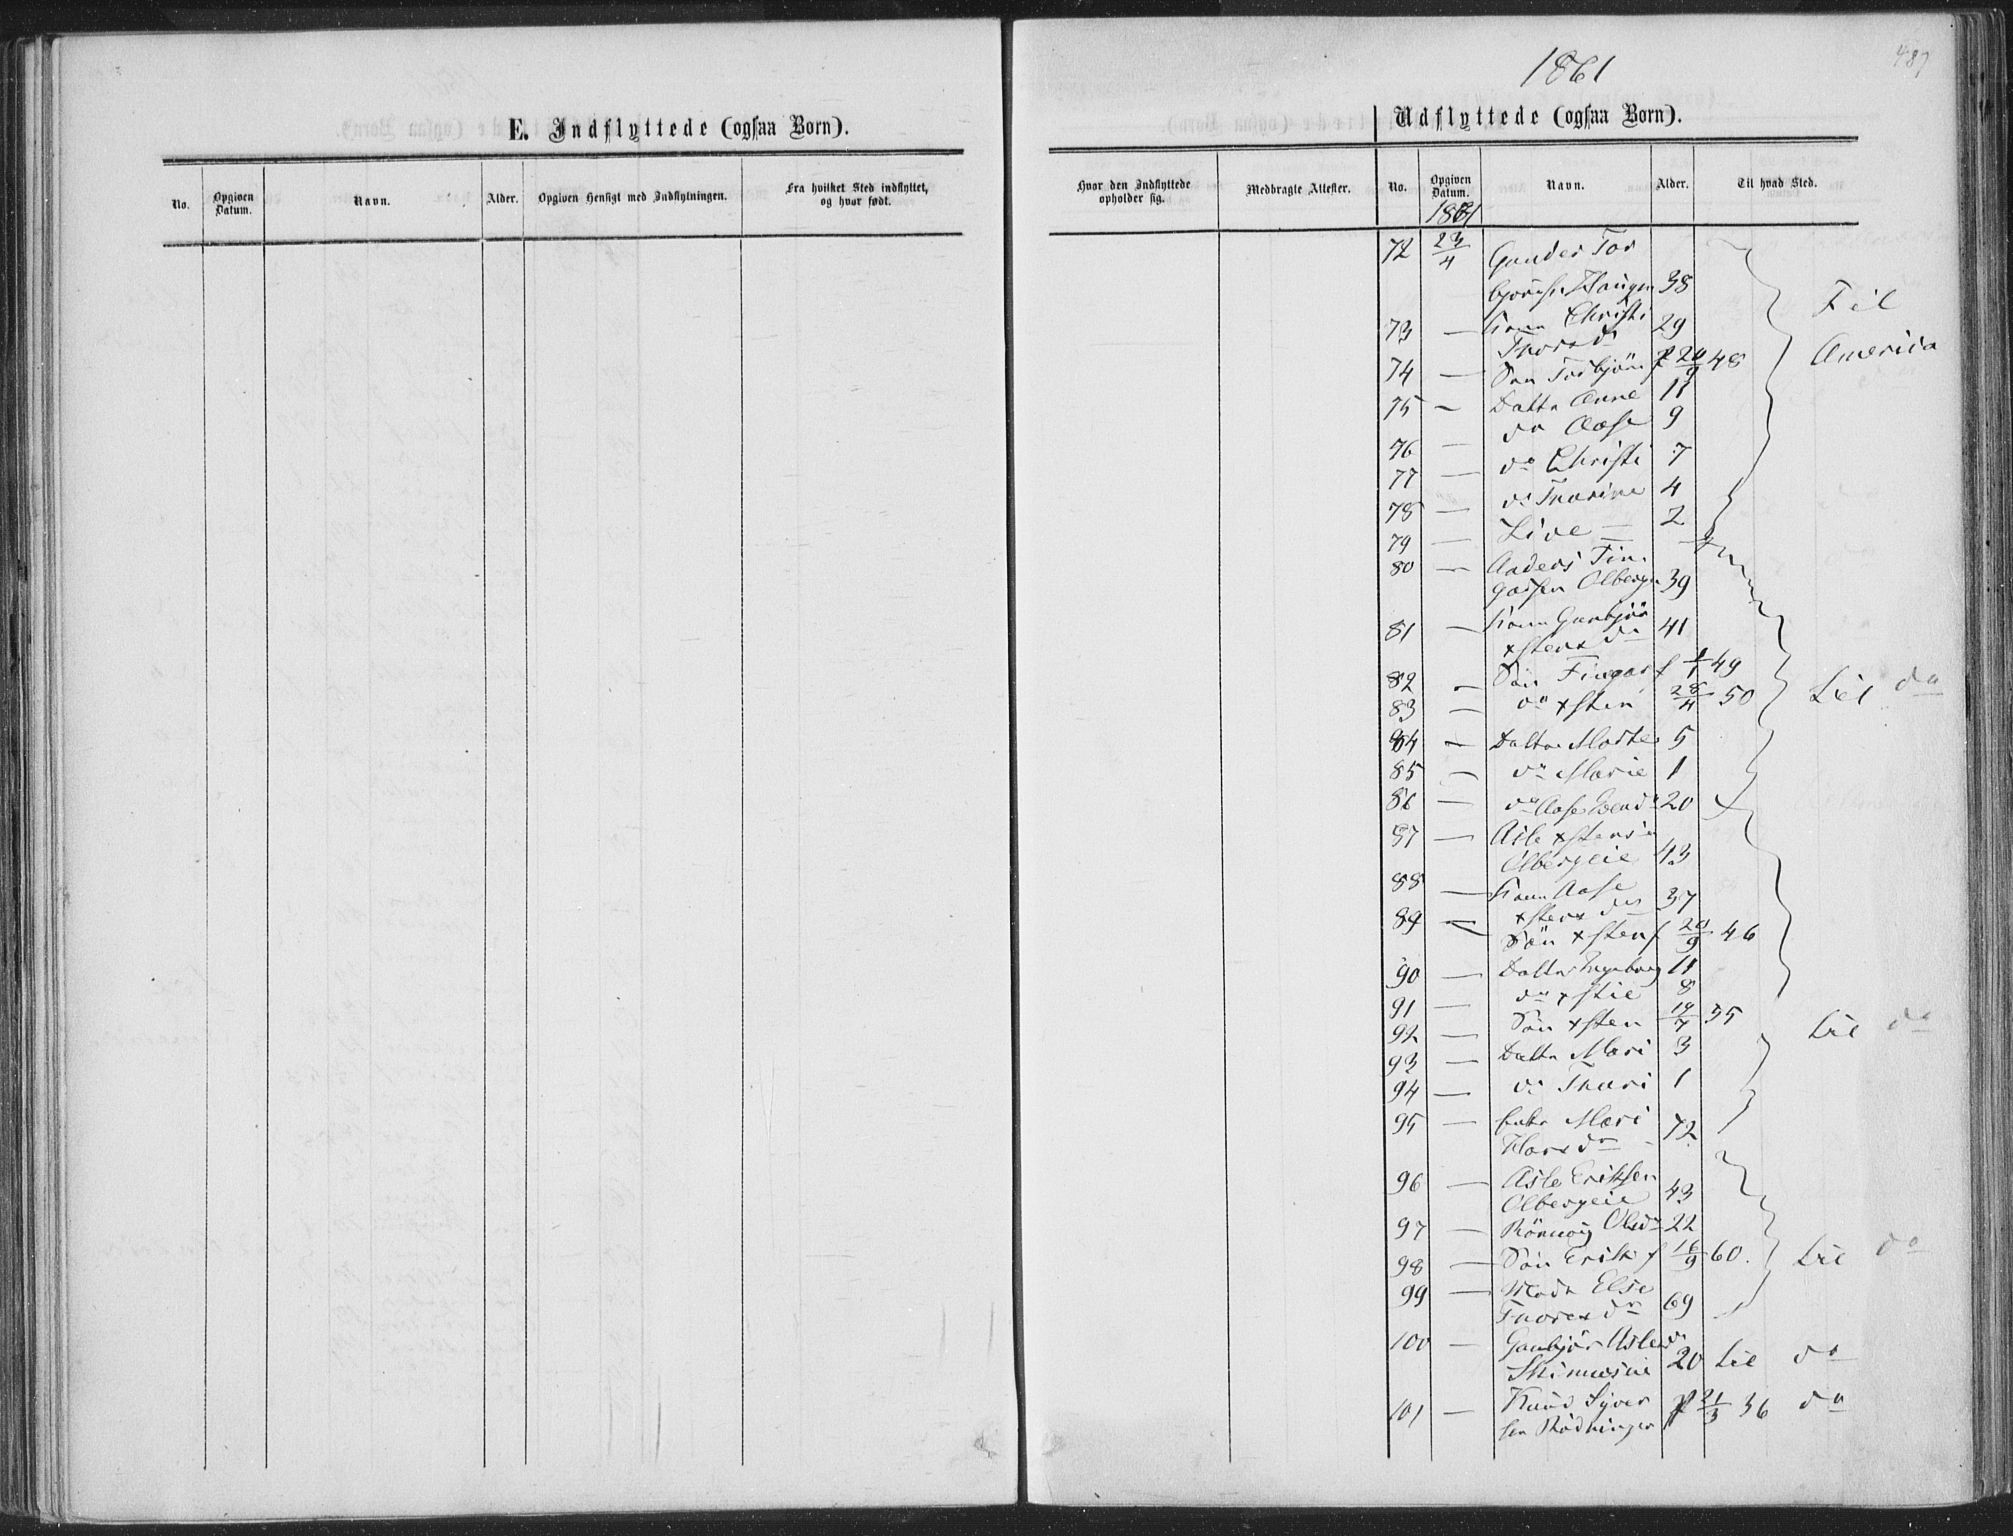 487
1861
E. Indflyttede (ogsaa Børn).
Udflyttede (ogsaa Børn).
No.
Opgiven Datum.
Navn.
Alder.
Opgiven Hensigt med Indflytningen.
Fra hvilket Sted indflyttet, og hvor født.
Hvor den Indflyttede opholder sig.
Medbragte Attester.
No.
Opgiven Datum.
Navn.
Alder.
Til hvad Sted.
1861
72 23/4 Gunder Tor
38
Til
73 — Kone Christi 29
Thorsd
America
74 — Søn Torbjörn f 20/9 48
75 — Datter Anne 11
76 — do Aase 9
77 — do Christi 7
78 — do Thorine 4
79 — Live — 2
80 — Anders Fin
garsen Olbergei 39
81 — Kone Gunbjør 41
xstensda
82 — Søn Fingar f 1/1 49
til do
83 — do xsten 28/4 50
84 — Datter Marte 5
85 — do Marie 1
86 — do Aase 20
87 — Asle xstensen
Olbergeie 43
88 — Kone Aase 37
xstensda
89 — Søn xsten f 20/9 46
90 — Datter Ingeborg 11
91 — do xstie 8
92 — Søn xsten 19/7 35
til do
93 — Datter Mari 3
94 — do Thuri 1
95 — Mari 72
96 — Asle Eriksen
Olbergeie 43
97 — Rönnaug Olsda 22
98 — Søn Erik f 16/9 60.
til do
99 — Moder Else
Thoresda 69
100 — Gunbjør Aslesda
20 til do
101 — Knud Syver
sen Rødningen f 21/3 36 do